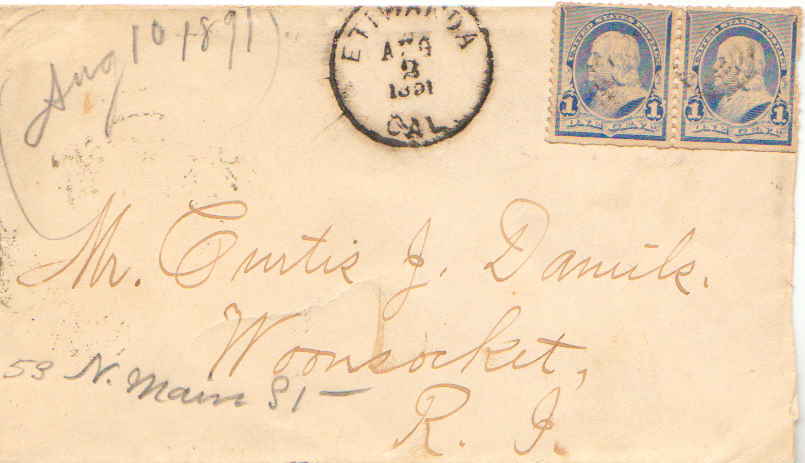 Aug 10 1891
ETIWANDA
AUG
3
1891
CAL.
UNITED STATES POSTAGE
1 1
ONE CENT
UNITED STATES POSTAGE
1 1
Mr. Curtis J. Daniels.
Woonsocket,
53 N. Main St —
R. I.